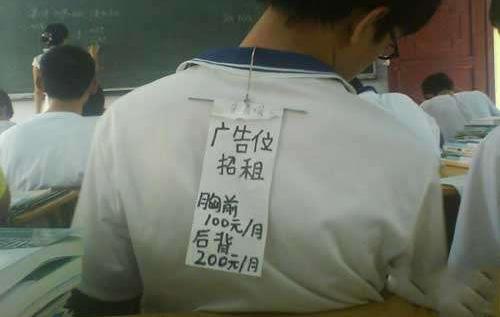 广告位
招租
胸前
100元/月
后背
200元/月